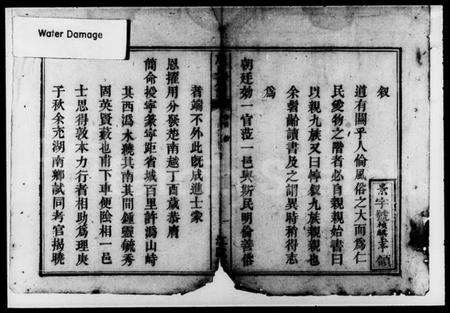 Water Damage
叙
道有關乎人倫風俗之大而為仁
民愛物之階者必自親親始書曰
以親九族又曰惇叙九族親親也
余髫齡讀書及之謂異時稍得志
為
朝廷効一官蒞一邑與斯民明倫善俗
者端不外此旣成進士蒙
恩擢用分發楚南越丁酉歲恭膺
簡命授寧篆寧距省城百里許溈山峙
其西溈水繞其南其間鍾靈毓秀
固英賢藪也甫下車便陰相一邑
士思得敦本力行者相助為理庚
子秋余充湖南鄉試同考官揭曉